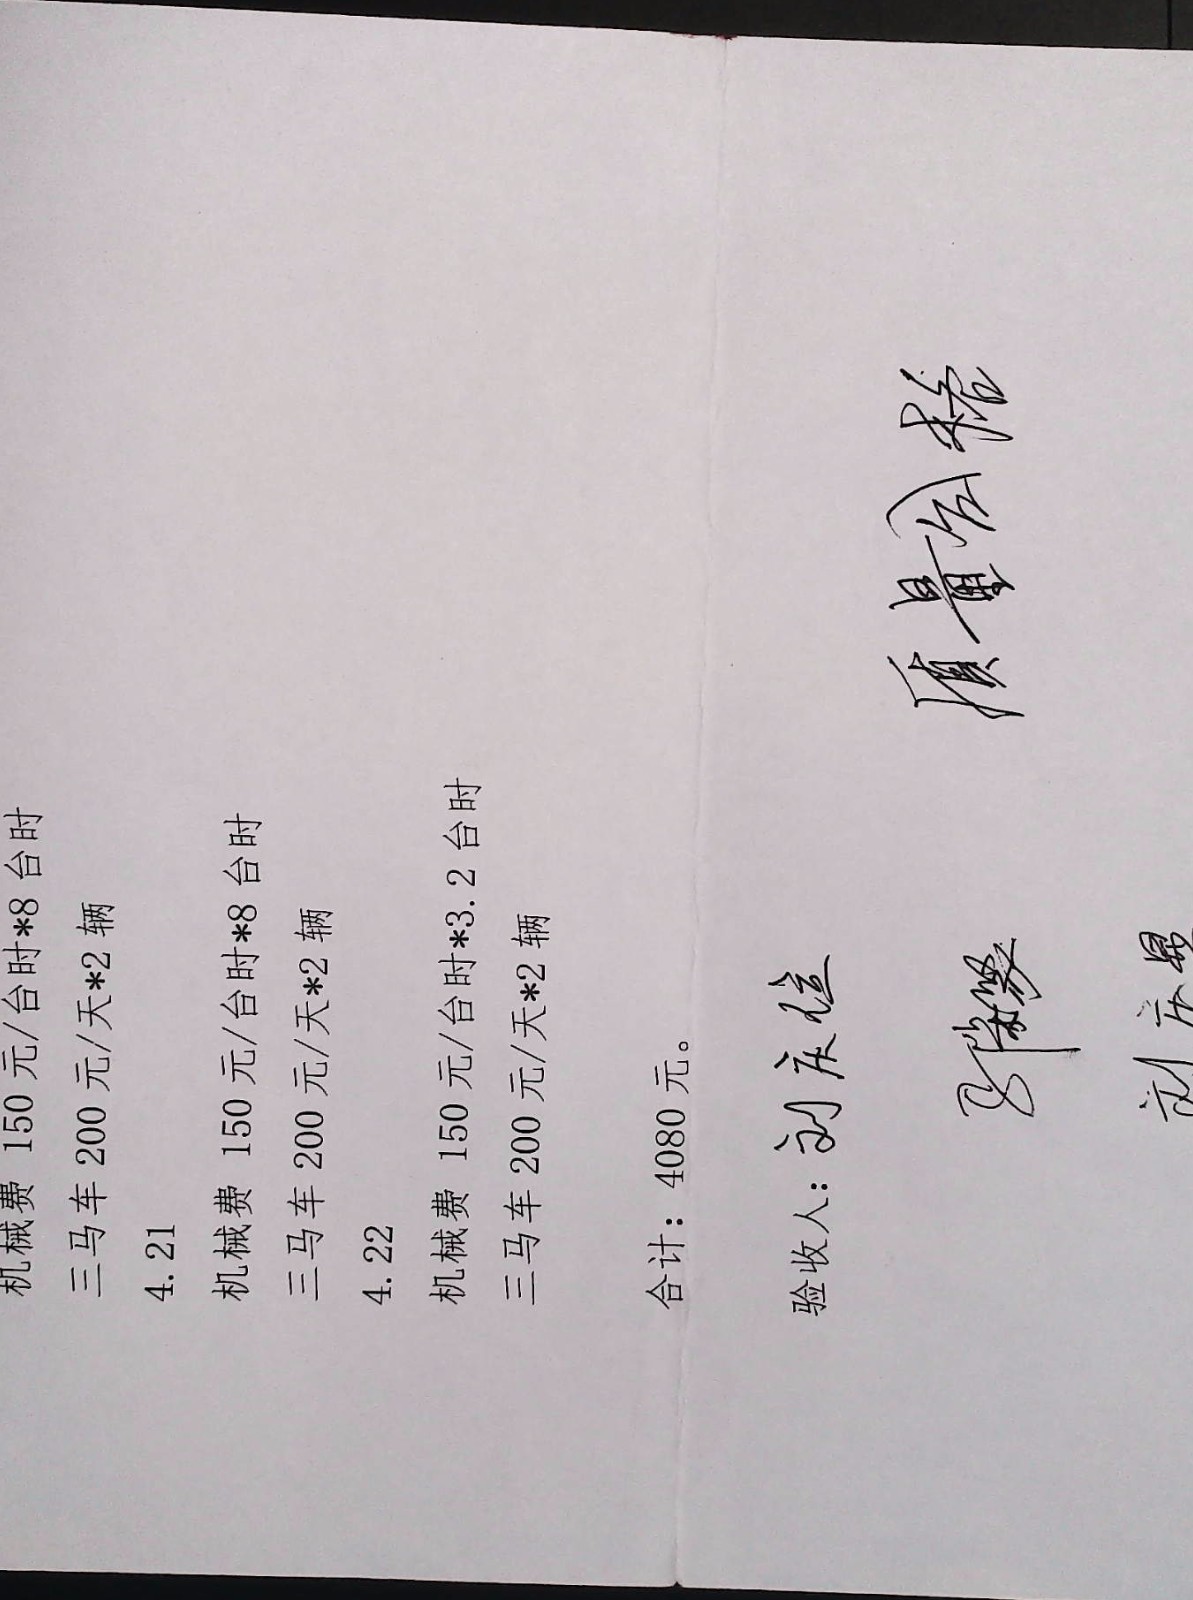 机械费 150 元/台时*8 台时
三马车 200 元/天*2 辆
4.21
机械费 150 元/台时*8 台时
三马车 200 元/天*2 辆
4.22
机械费 150 元/台时*3.2 台时
三马车 200 元/天*2 辆
合计：4080 元。
验收人：刘庆
质量合格
刘庆